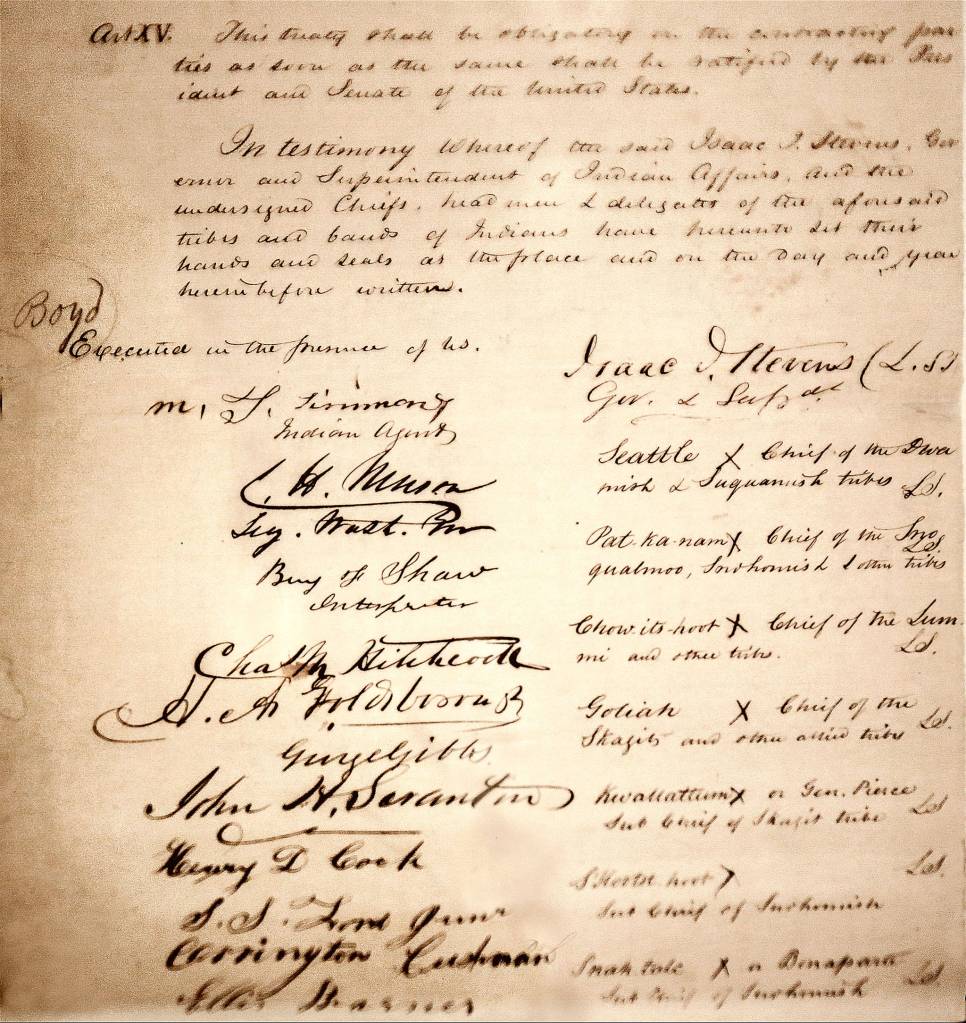 Art XV. This treaty shall be obligating on the contracting par
ties as soon as the same shall be ratified by the Pres
ident and Senate of the United States.
In testimony Whereof the said Isaac I. Stevens, Gov
ernor and Superintendent of Indian Affairs, and the
undersigned Chiefs, headmen & delegates of the aforesaid
tribes and bands of Indians have hereunto set their
hands and seals at the place and on the day and year
hereinbefore written.
Boyd
Executed in the presence of us.
M. T. Simmons
Indian Agent
C. H. Mason
Secy. Wash. Ter
Benj F Shaw
Interpreter
Chas M Hitchcock
H. A Goldsborough
George Gibbs
John H. Scranton
Henry D Cock
S. S. Ford Junr
Orrington Cushman
Ellis Barnes
Isaac I. Stevens (L.S)
Gov. & Supdt
Seattle X Chief of the Dwa
mish & Suquamish tribes LS.
Pat-ka-nam X Chief of the Sno
qualmoo, Snohomish & other tribes LS.
Chow-its-hoot X Chief of the Lum
mi and other tribes. LS.
Goliah X Chief of the
Skagits and other allied tribes LS.
Kwallattum X or Gen. Pierce
Sub Chief of Skagit tribe LS
S'hootst-hoot X LS.
Sub Chief of Snohomish
Snah-talc X or Bonaparte
Sub Chief of Snohomish LS.